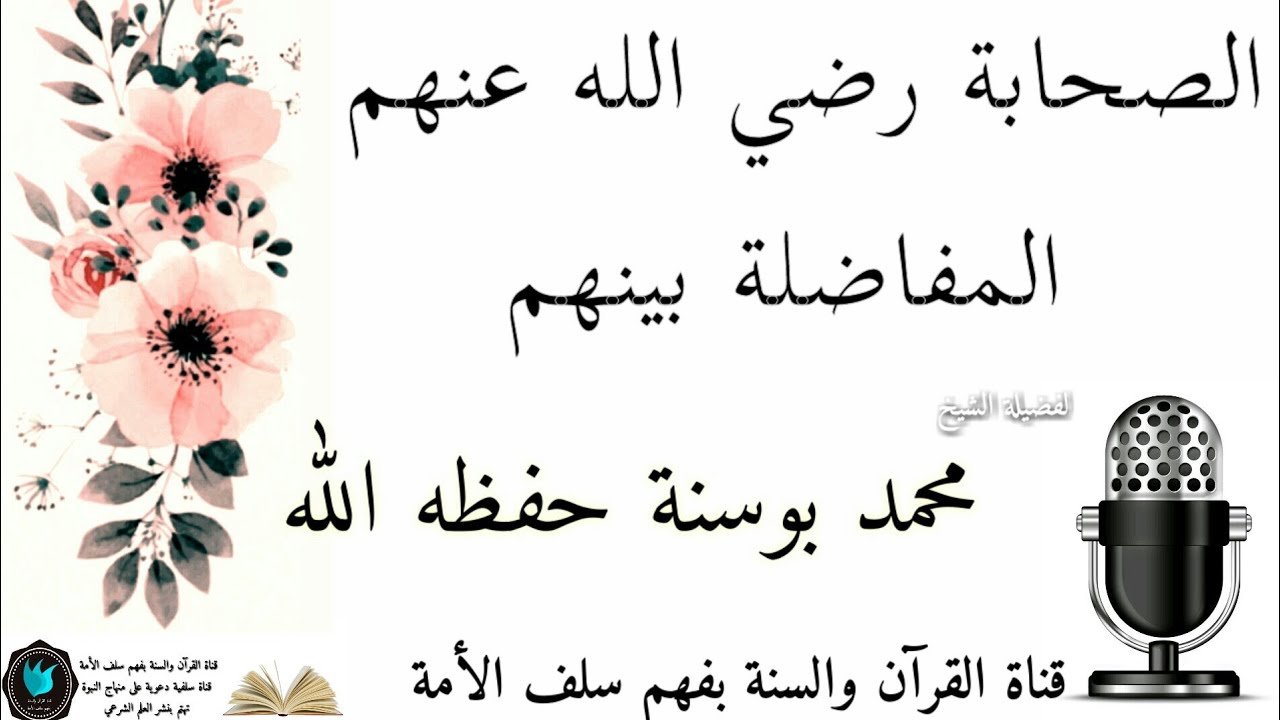 الصحابة رضي الله عنهم
المفاضلة بينهم
لفضيلة الشيخ
محمد بوسنة حفظه الله
قناة القرآن والسنة بفهم سلف الأمة
قناة القرآن والسنة بفهم سلف الأمة
قناة سلفية دعوية على منهاج النبوة
تهتم بنشر العلم الشرعي